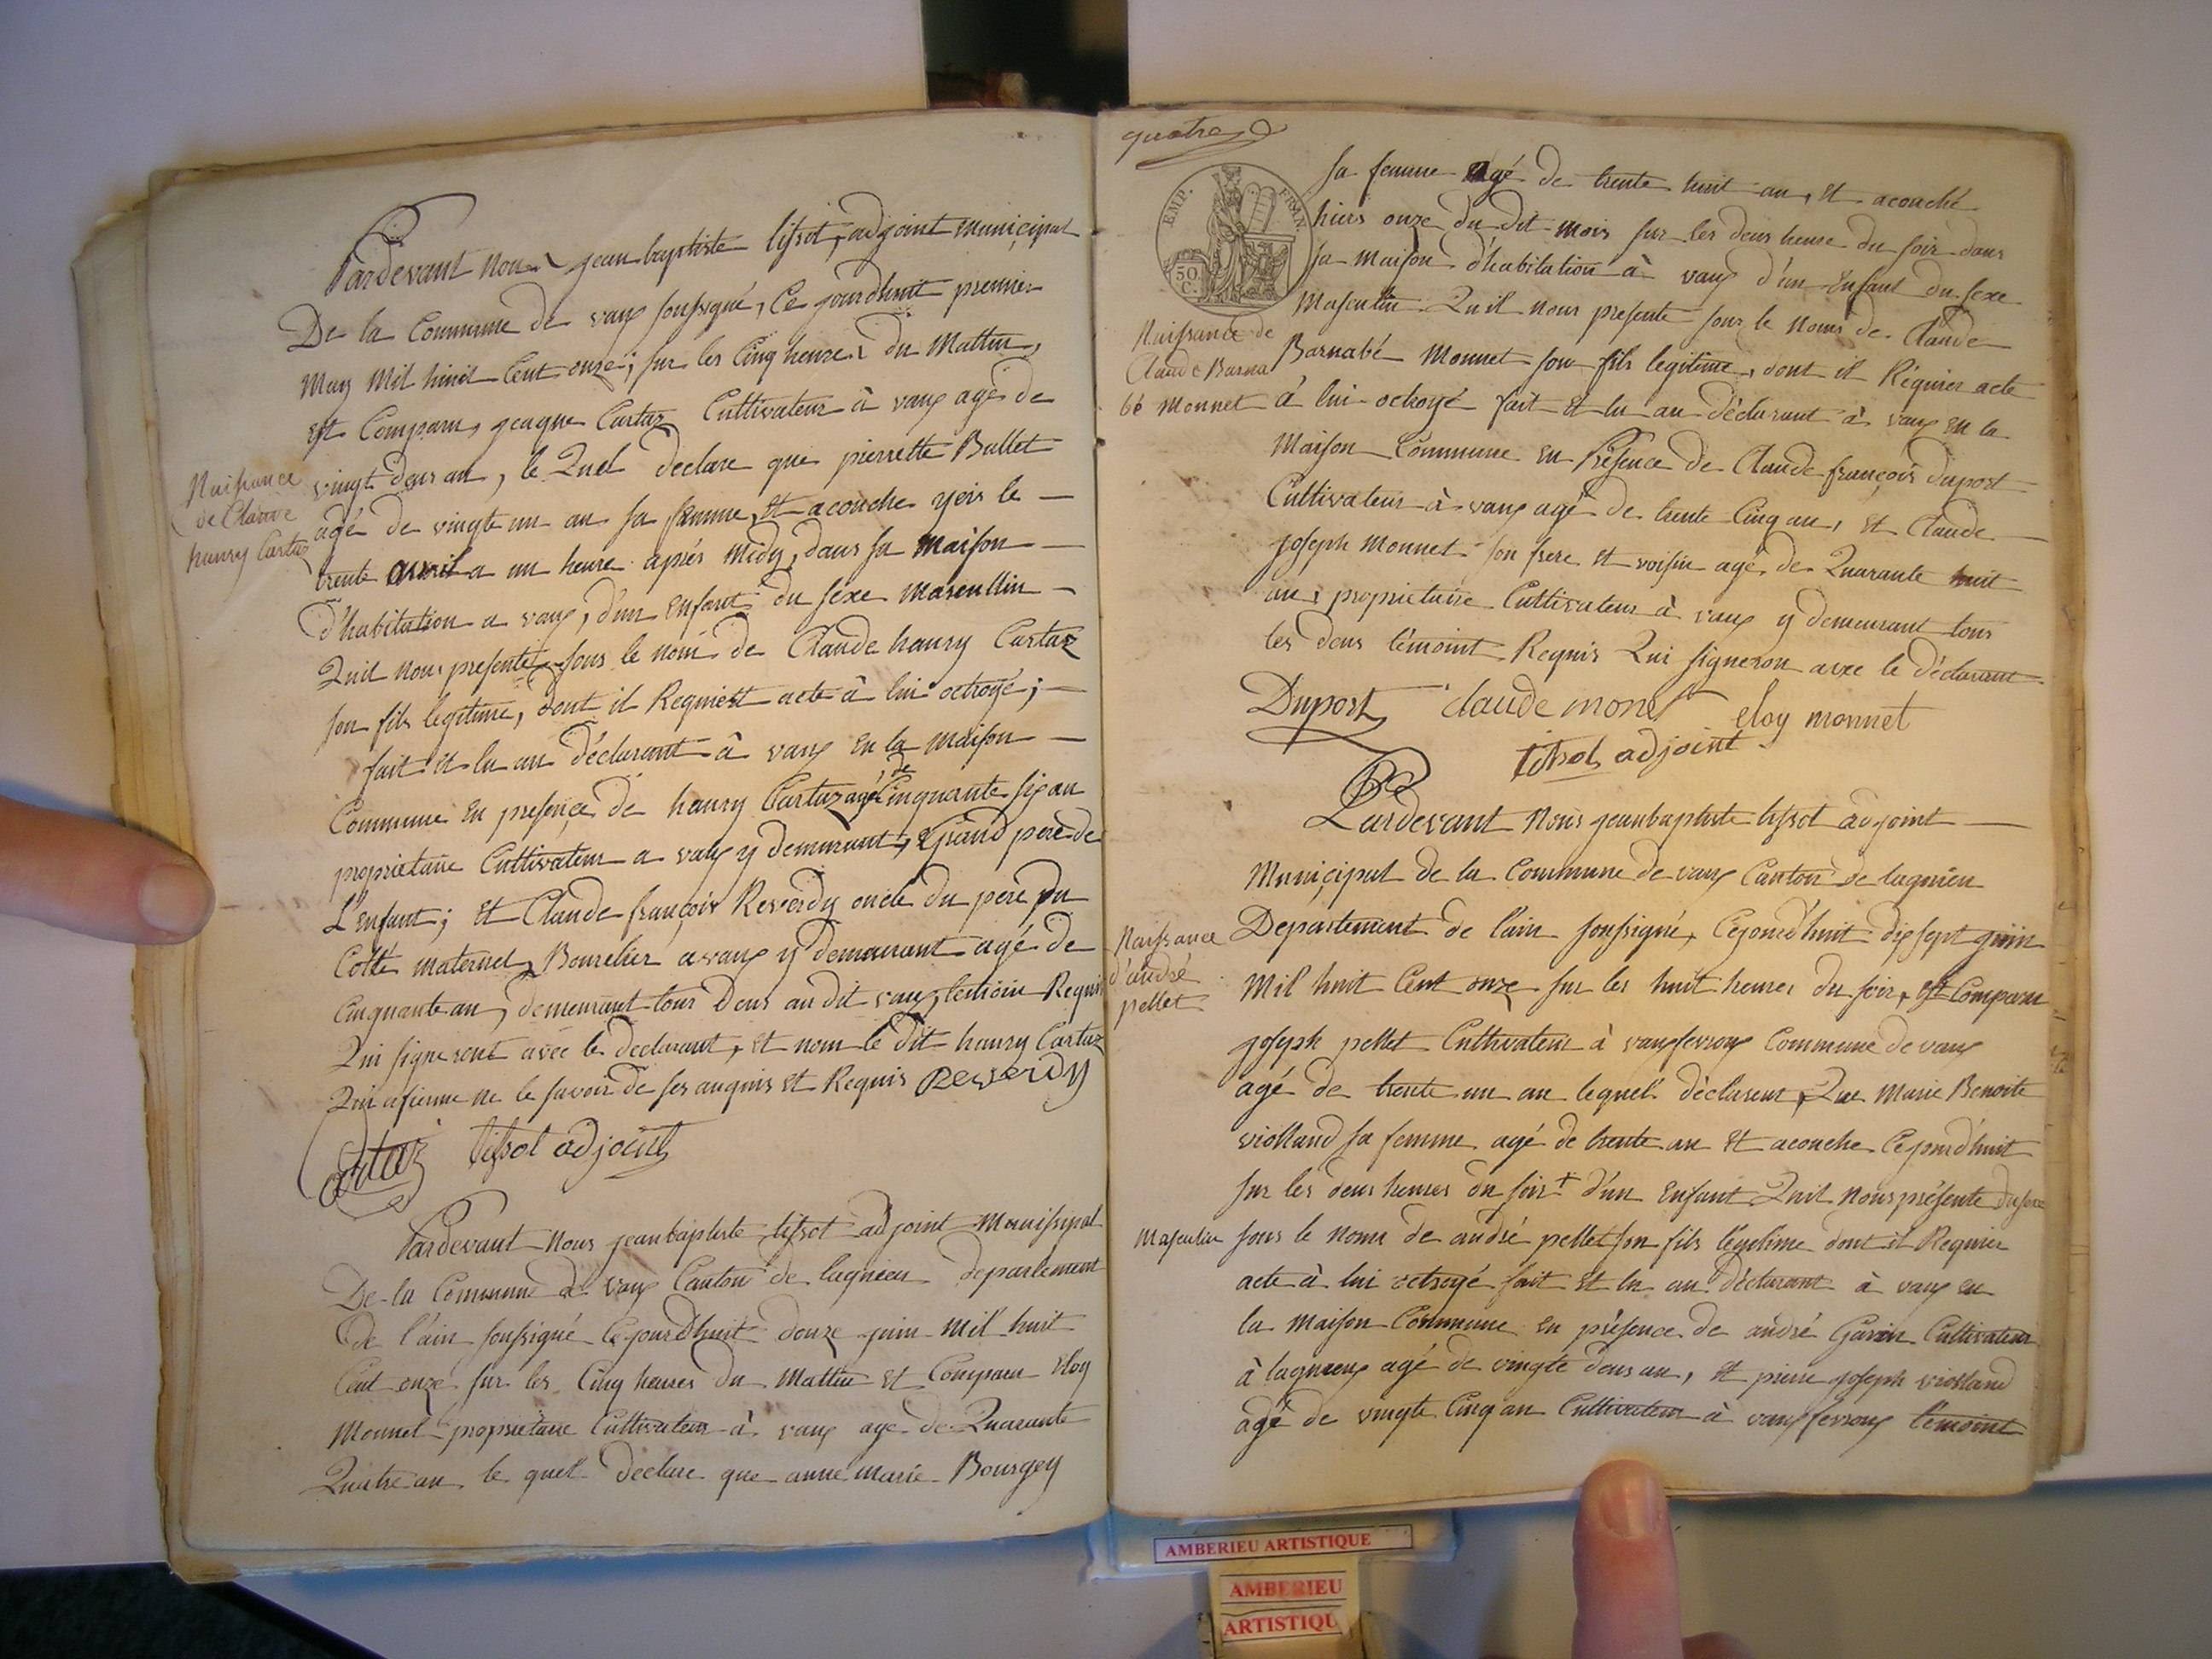 Pardevant nous jean baptiste tissot, adjoint municipal
De la Commune de vaux soussigné, Ce jourdhuit premier
May Mil huit Cent onze; sur les Cinq heures du Mattin,
Est Comparu, jeaque Cartaz Cultivateur à vaux agé de
vingt deux an, le Quel declare que pierrette Ballet
agé de vingte un an sa femme, Et acouche yeir le
trente avril a un heure après Midy, dans sa Maison
d'habitation a vaux, d'un Enfant du sexe Masculin
Quil nous presente sous le nom de Claude hanry Cartaz
son fils legitime, dont il Requiert acte à lui octroyé;
fait et lu au déclarant à vaux En la maison
Commune En presence de hanry Cartaz agé de Cinquante six an
proprietaire Cultivateur a vaux y demeurant, Grand pere de
L'Enfant; Et Claude françoix Reverdy oncle du pere du
Cotté maternel, Bourelier a vaux y demeurant agé de
Cinquante an, demeurant tous deux au dit vaux, temoin Requis
Qui signeront avec le declarant, Et nom le dit hanry Cartaz
Qui afirme ne le savoir de ses anquis Et Requis Reverdy
Cartaz tissot adjoint
Naissance
de Claude
hanry Cartaz
Pardevant nous jean baptiste tissot adjoint Municipal
De la Commune de vaux Canton de lagnieu departement
De l'ain soussigné Cejourdhuit douze juin Mil huit
Cent onze sur les Cinq heures du Mattin Et Comparu Eloy
Monnet proprietaire Cultivateur à vaux age de Quarante
Quatre an le quel declare que anne marie Bourgey
quatre
EMP. FRAN.
50 C.
sa femme agé de trente huit an, Et acouché
hiers onze du dit mois sur les deux heure du soir dans
sa maison d'habitation à vaux d'un Enfant du sexe
Masculin Quil nous presente sous le noms de Claude
Barnabé Monnet son fils legitime, dont il Réquier acte
à lui octroyé fait Et lu au déclarant à vaux En la
Maison Commune En Présence de Claude françois duport
Cultivateur à vaux agé de trente Cinq an, Et Claude
joseph Monnet son frere Et voisin agé de Quarante huit
an, proprietaire Cultivateur à vaux y demeurant tous
les deux témoint Requis Qui signeron avec le déclarant
Duport claude monet eloy monnet
tissot adjoint
Naissance de
Claude Barna
bé Monnet
Pardevant Nous jean baptiste tissot adjoint
Municipal de la Commune de vaux Canton de lagnieu
Departement de l'ain soussigné, Cejourd'huit dix sept juin
Mil huit Cent onze sur les huit heures du soir, Est Comparu
joseph pellet Cultivateur à vauxfevroux Commune de vaux
agé de trente un an lequel déclareur, Que Marie Benoite
violland sa femme agé de trente an Et acouche Cejourd'huit
sur les deux heures du soir + d'un Enfant Quil nous présente du sexe
Masculin sous le noms de andré pellet son fils légitime dont il Requier
acte à lui octroyé fait Et lu au déclarant à vaux En
la Maison Commune En présence de andré Gavin Cultivateur
à lagnieux agé de vingte deux an, Et pierre joseph violland
agé de vingte Cinq an Cultivateur à vauxfevroux témoint
Naissance
d'andré
pellet
AMBERIEU ARTISTIQUE
AMBERIEU
ARTISTIQU